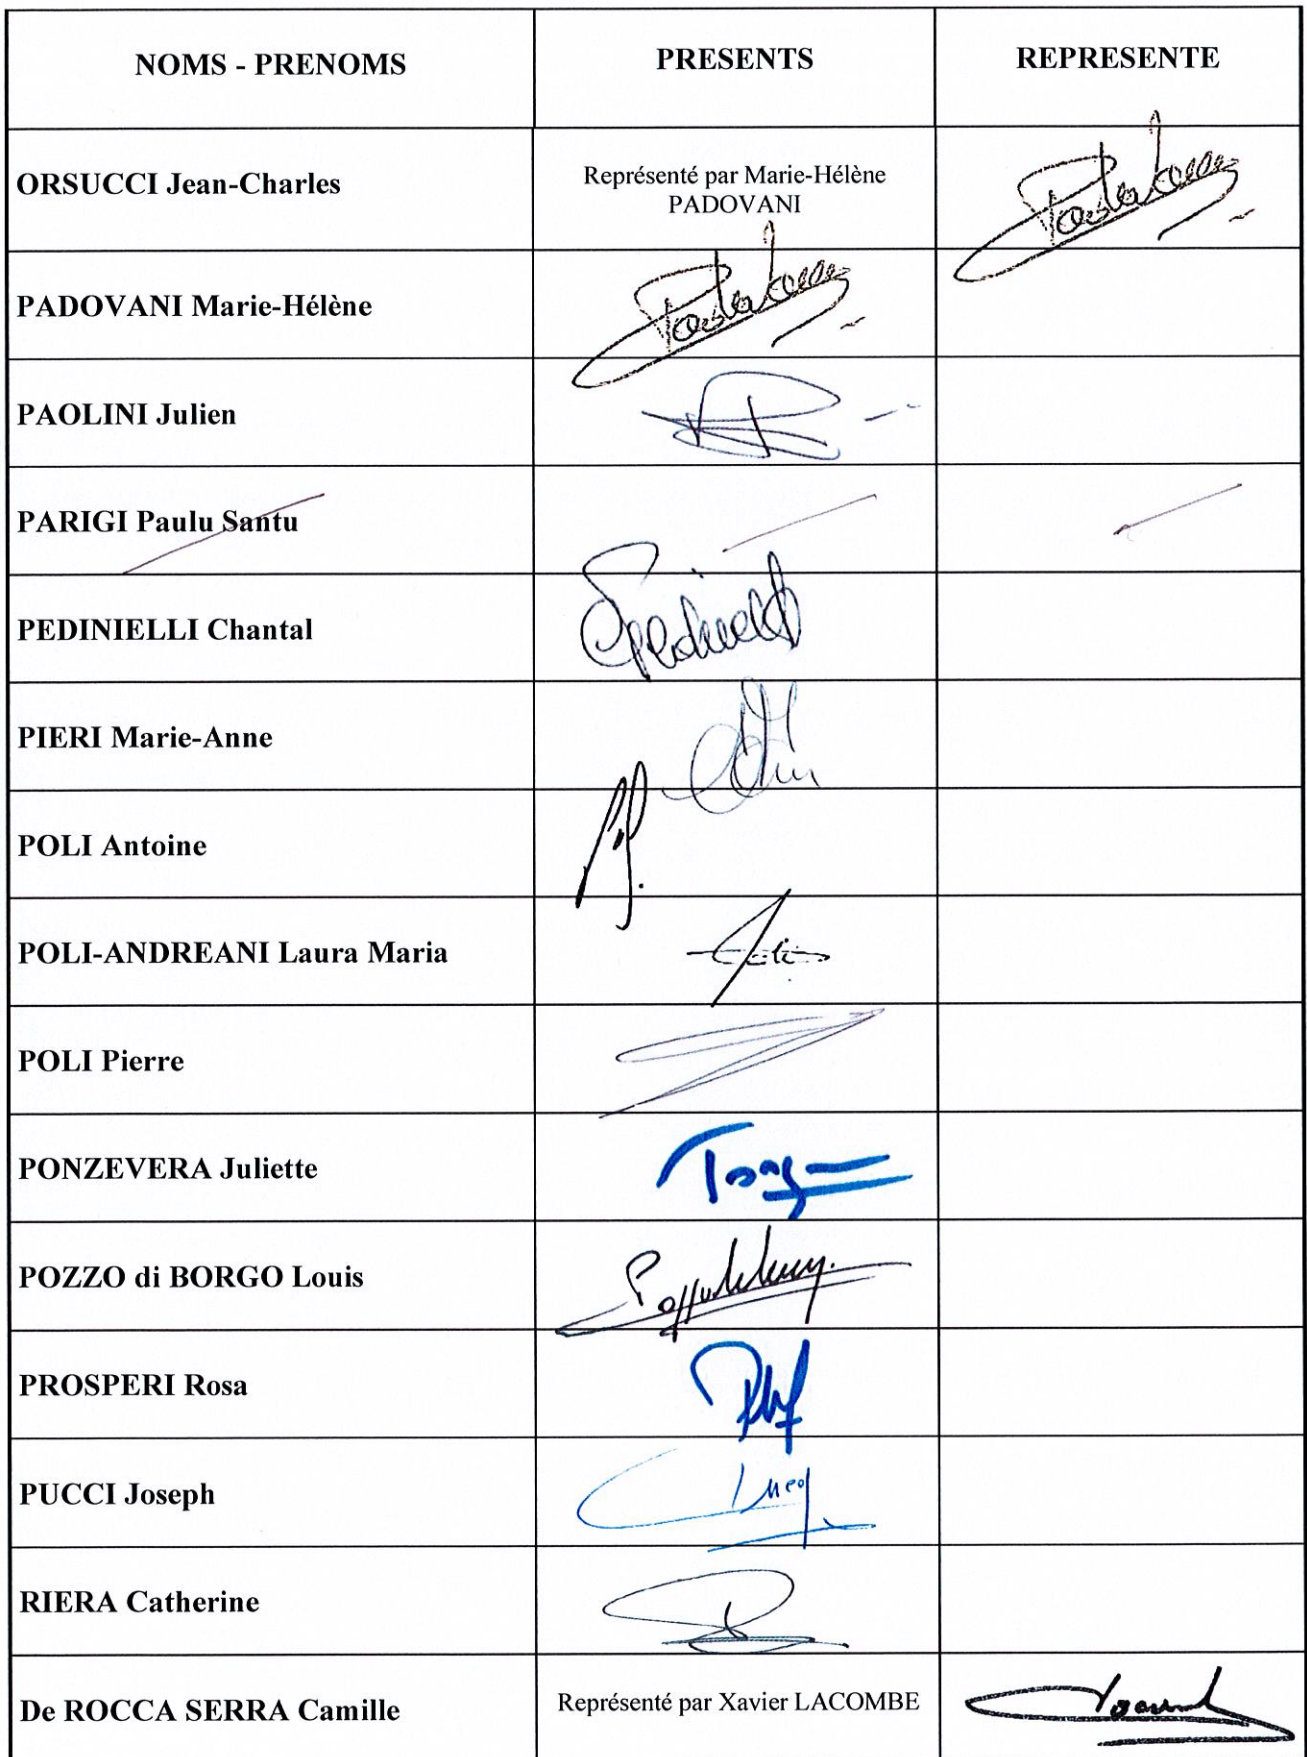 NOMS - PRENOMS
PRESENTS
REPRESENTE
ORSUCCI Jean-Charles
Représenté par Marie-Hélène
PADOVANI
PADOVANI Marie-Hélène
PAOLINI Julien
PARIGI Paulu Santu
PEDINIELLI Chantal
PIERI Marie-Anne
POLI Antoine
POLI-ANDREANI Laura Maria
POLI Pierre
PONZEVERA Juliette
POZZO di BORGO Louis
PROSPERI Rosa
PUCCI Joseph
RIERA Catherine
De ROCCA SERRA Camille
Représenté par Xavier LACOMBE